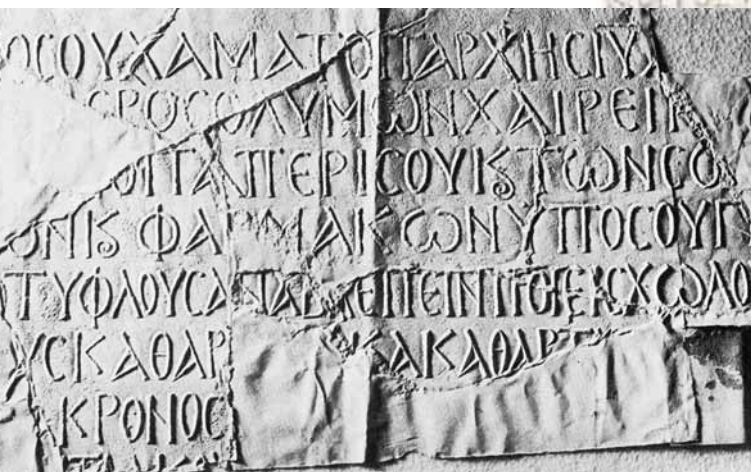 ΟϹΟΥΧΑΜΑΤΟΠΑΡΧΗϹΙΥ
ΕΡΟϹΟΛΥΜΩΝΧΑΙΡΕΙΝ
ΤΑΠΕΡΙϹΟΥΚϚΤΩΝϹΩ
ΦΑΡΜΑΚΩΝΥΠΟϹΟΥΓ
ΤΥΦΛΟΥϹΑΝΑΒΛΕΠΕΙΝΠΟΙΕΙϹΧΩΛΟ
ΥϹΚΑΘΑΡ ΑΚΑΘΑΡΤ
ΚΡΟΝΟϹ